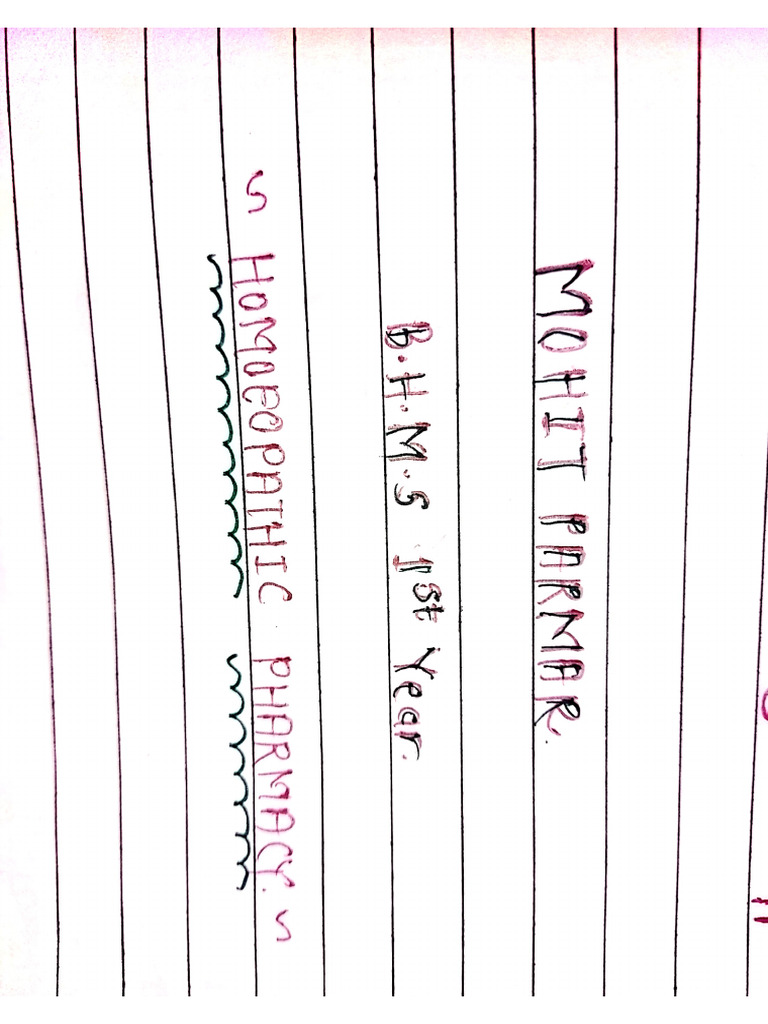 MOHIT PARMAR.
B.H.M.S 1st Year.
~ HOMOEOPATHIC PHARMACY. ~